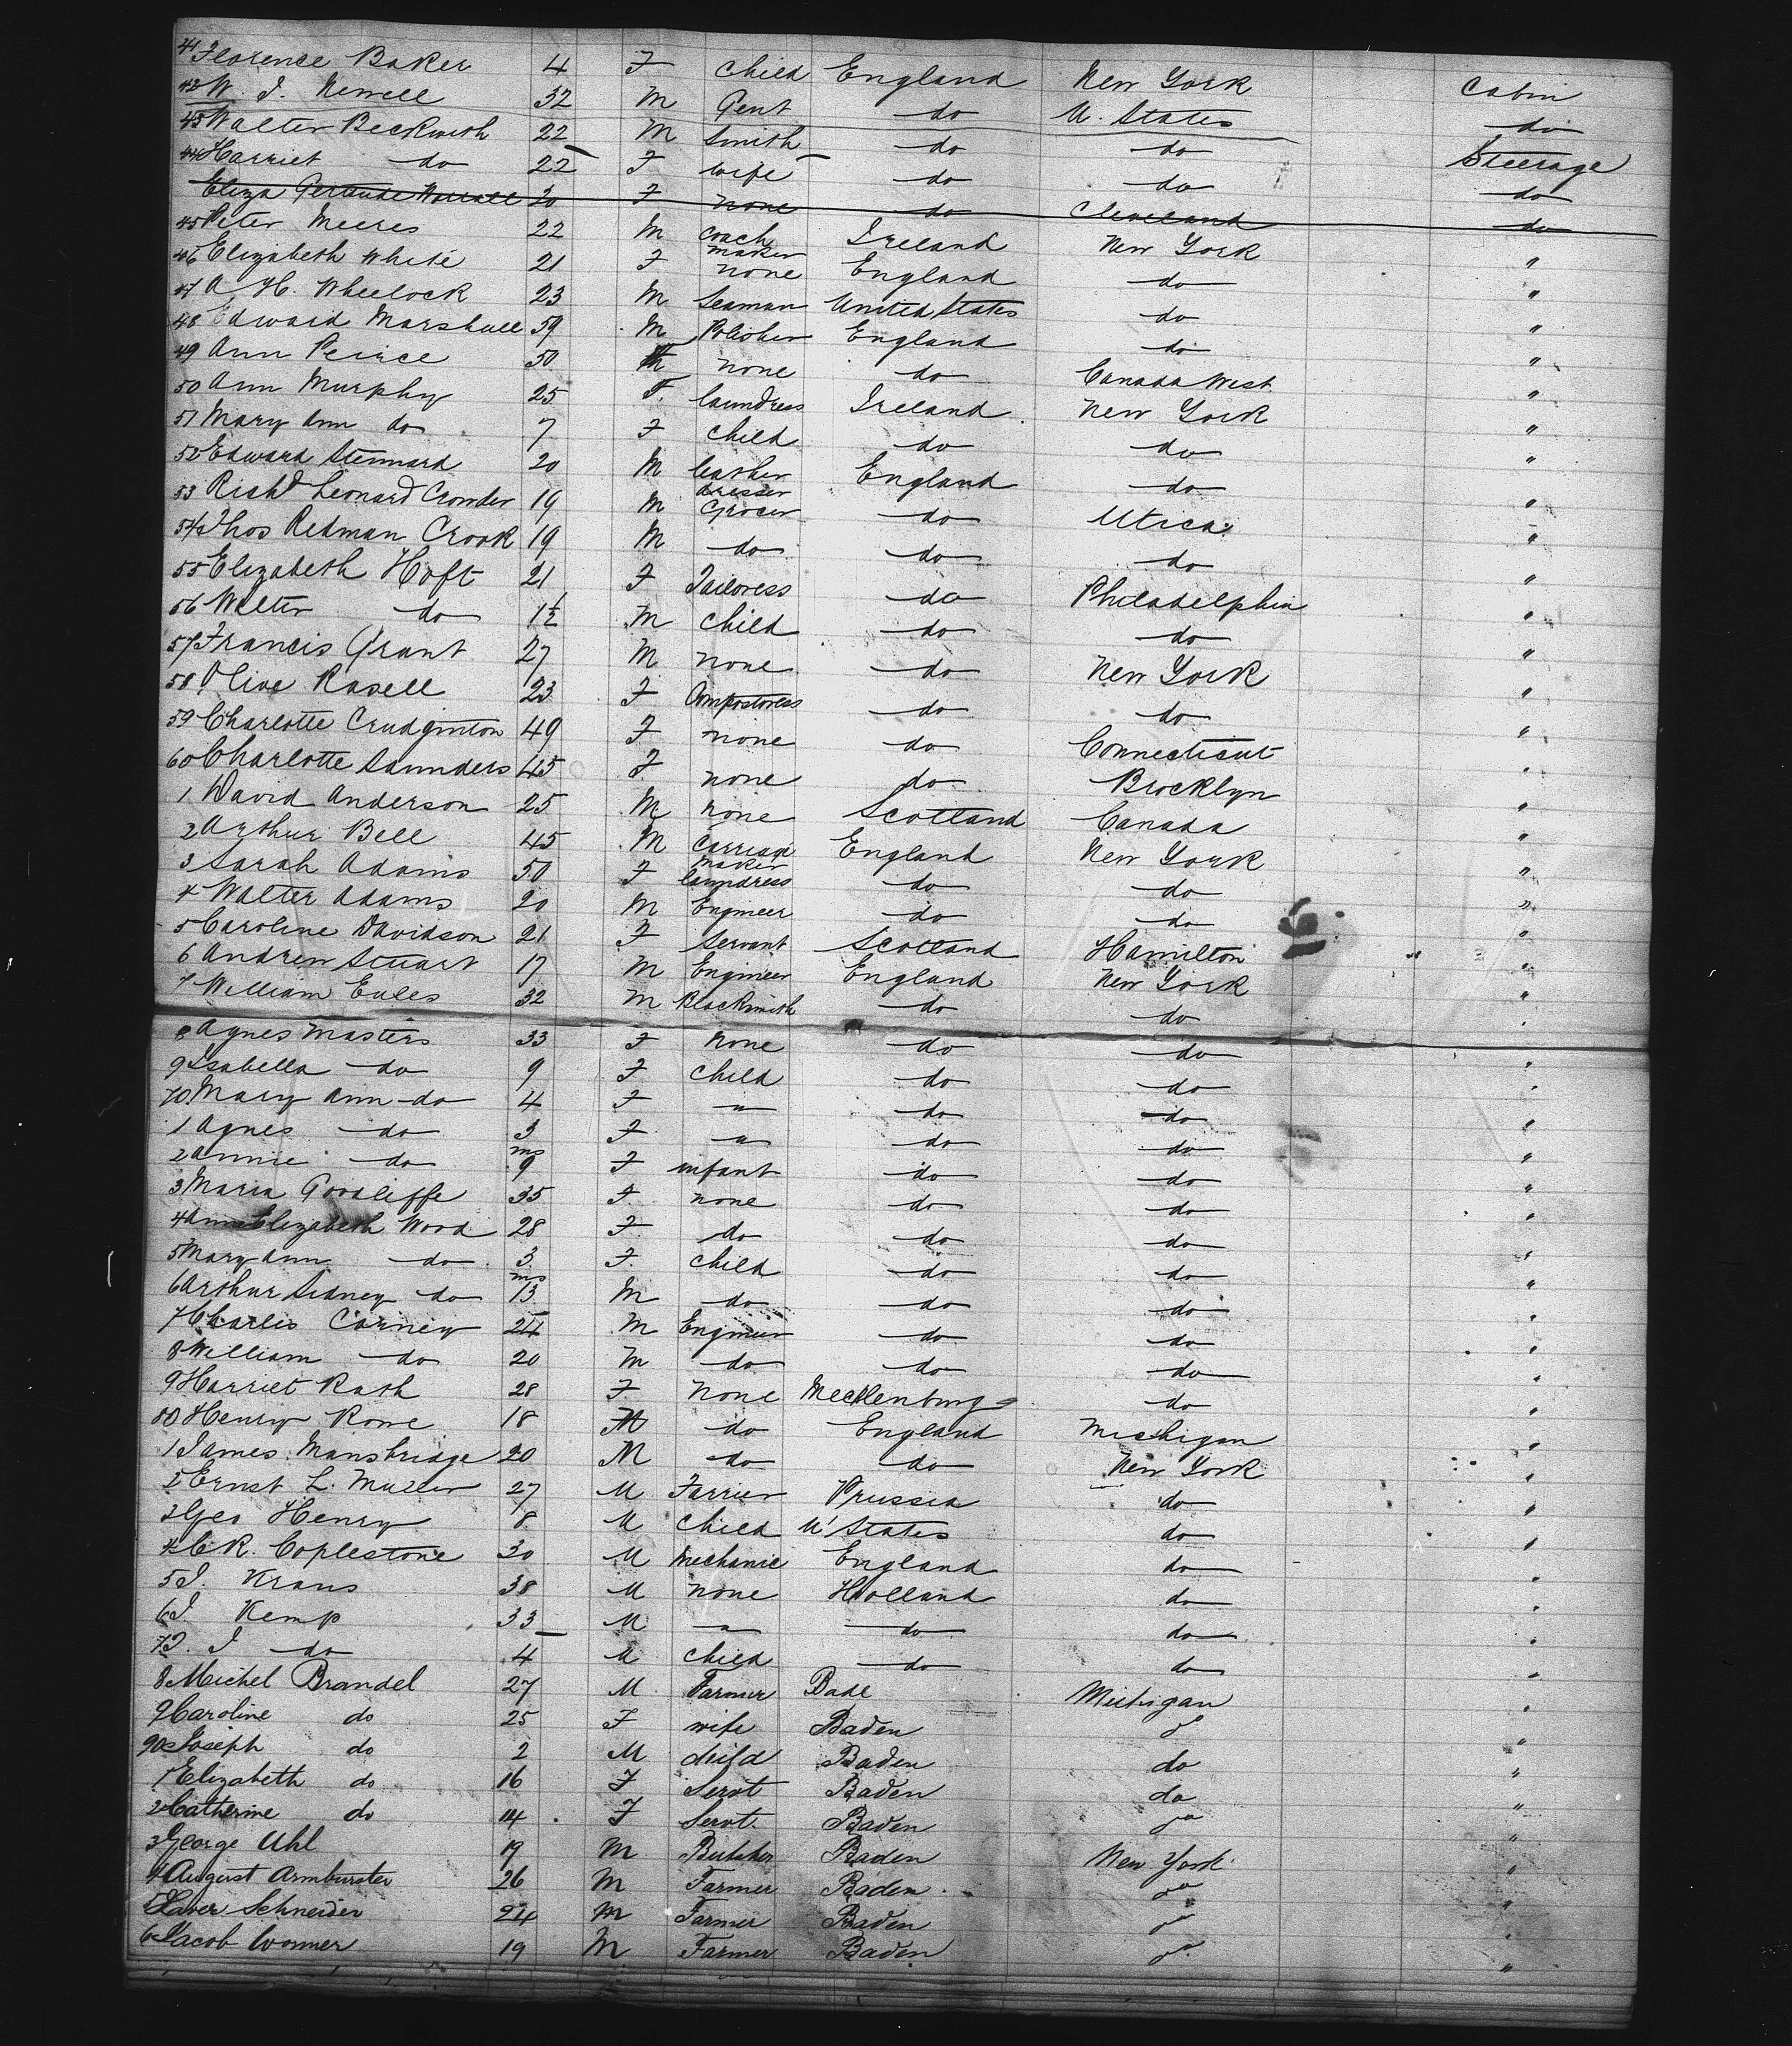 41 Florence Baker 4 F Child England New York Cabin
42 W. J. Newell 32 M Gent do U. States do
43 Walter Beckwith 22 M Smith do do Steerage
44 Harriet do 22 F wife do do do
Eliza Gertrude 20 F none do Cleveland do
45 Peter Meeres 22 M Coach maker Ireland New York "
46 Elizabeth White 21 F none England do "
47 A. H. Wheelock 23 M Seaman United States do "
48 Edward Marshall 59 M Polisher England do "
49 Ann Peirce 50 none do Canada West "
50 Ann Murphy 25 F. laundress Ireland New York "
51 Mary Ann do 7 F Child do do "
52 Edward Stennard 20 M leather dresser England do "
53 Richd Leonard Crowder 19 M Grocer do Utica "
54 Thos Redman Crook 19 M do do do "
55 Elizabeth Hoft 21 F Tailoress do Philadelphia "
56 Walter do 1½ M Child do do "
57 Francis Grant 27 M none do New York "
58 Olive Rasell 23 F Compostoress do do "
59 Charlotte Crudginton 49 F none do Connecticut "
60 Charlotte Saunders 45 F none do Brocklyn "
1 David Anderson 25 M none Scotland Canada "
2 Arthur Bell 45 M Carriage maker England New York "
3 Sarah Adams 50 F laundress do do "
4 Walter Adams 20 M Engineer do do "
5 Caroline Davidson 21 F Servant Scotland Hamilton "
6 Andrew Stuart 17 M Engineer England New York "
7 William Eules 32 M Blacksmith do do "
8 Agnes Masters 33 F none do do "
9 Isabella do 9 F Child do do "
70 Mary Ann do 4 F " do do "
1 Agnes do 3 F " do do "
2 Annie do ms 9 F infant do do "
3 Maria Goodliffe 35 F. none do do "
4 Ann Elizabeth Wood 28 F. do do do "
5 Mary Ann do 3 F. Child do do "
6 Arthur Sidney do ms 13 M do do do "
7 Charles Carney 24 M Engineer do do "
8 William do 20 M do do do "
9 Harriet Rath 28 F none Mecklenburg do "
80 Henry Rowe 18 M do England Michigan "
1 James Mansbridge 20 M do do New York "
2 Ernst L. Muller 27 M Farrier Prussia do "
3 Geo Henry 8 M Child U' States do "
4 C. R. Coplestone 30 M Mechanic England do "
5 J. Kraus 38 M none Holland do "
6 J Kemp 33 M " do do "
7 J. J do 4 M Child do do "
8 Michel Brandel 27 M Farmer Bade Michigan "
9 Caroline do 25 F wife Baden do "
90 Joseph do 2 M child Baden do "
1 Elizabeth do 16 F Servt Baden do "
2 Catherine do 14 F Servt. Baden do "
3 George Uhl 19 M Butcher Baden New York "
4 August Armburster 26 M Farmer Baden do "
5 Xaver Schneider 24 M Farmer Baden do "
6 Jacob Wonner 19 M Farmer Baden do "